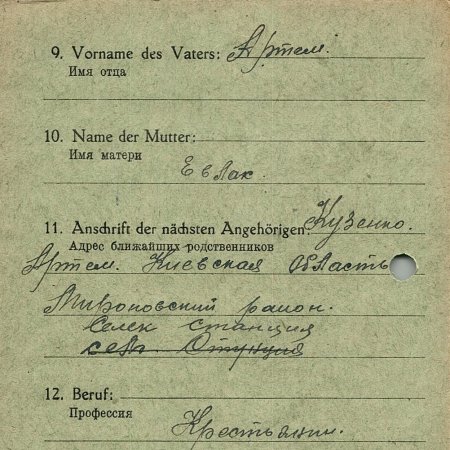 9. Vorname des Vaters: Артем.
Имя отца
10. Name der Mutter:
Имя матери
Евлак.
11. Anschrift der nächsten Angehörigen: Кузенко.
Адрес ближайших родственников
Артем. Киевская область
Мироновский район.
Селек станция
12. Beruf:
Профессия
Крестьянин.